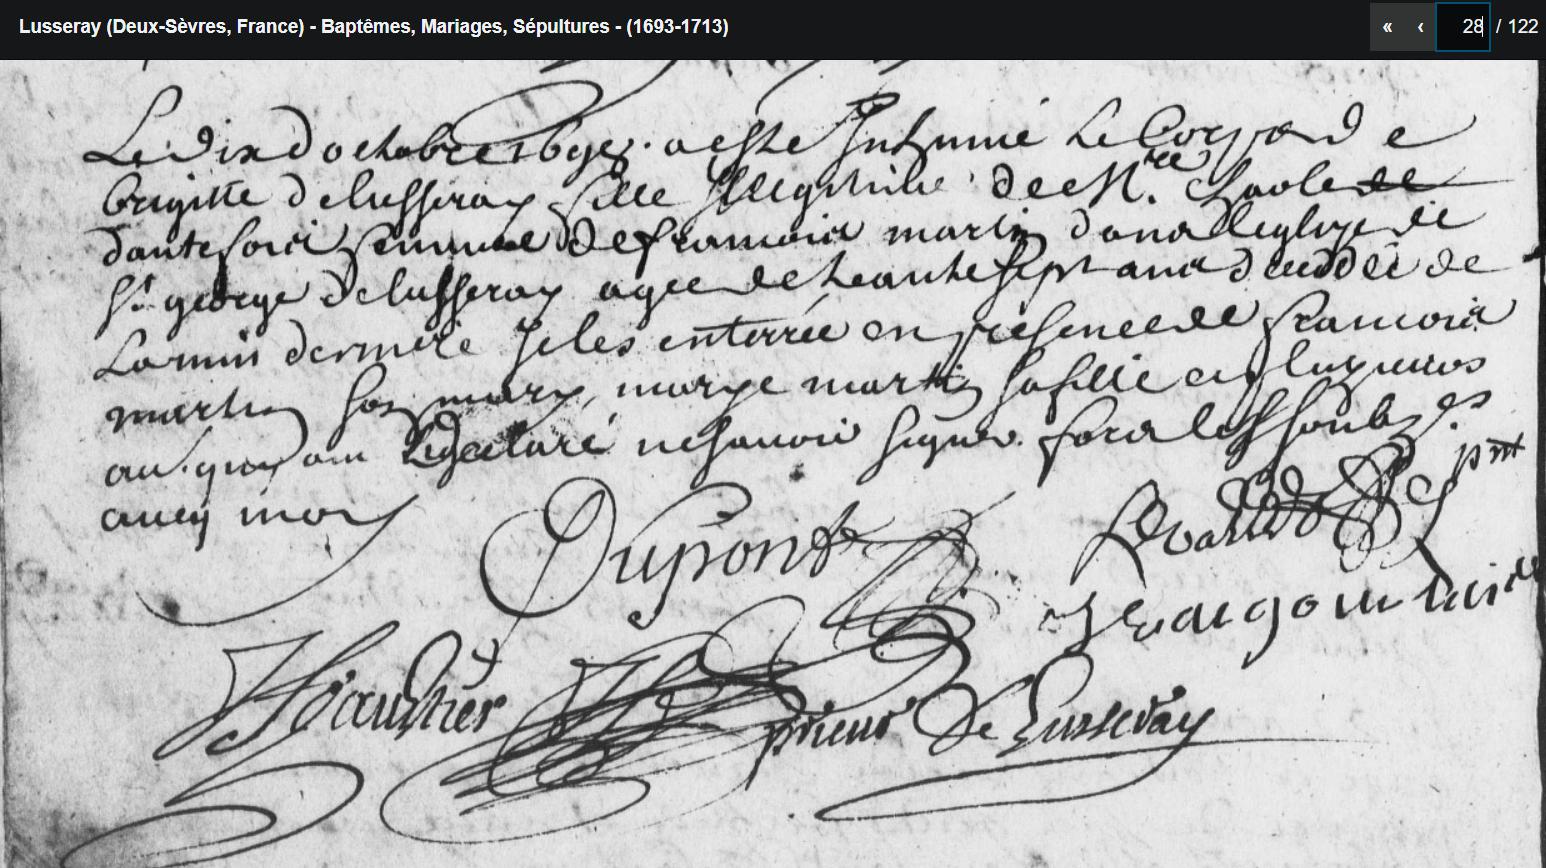 Lusseray (Deux-Sèvres, France) - Baptêmes, Mariages, Sépultures - (1693-1713)
« ‹ 28 / 122
Le dix d octobre a esté Inhumé Le Corps de
brigitte de lusseray fille Illegitime de Mre Charle de
dantefoix femme de francois martin dans leglize de
St george de lusseray agee de trante sept ans decedee de
La nuit derniere Je les enterrée en presence de francois
martin son mary, marye martin sa fille et plusieurs
au. qui ont declaré ne sauoir signer. fors les soubz.s
auecq moy
Dupont pnt
J Gauthier prieur De Lusseray